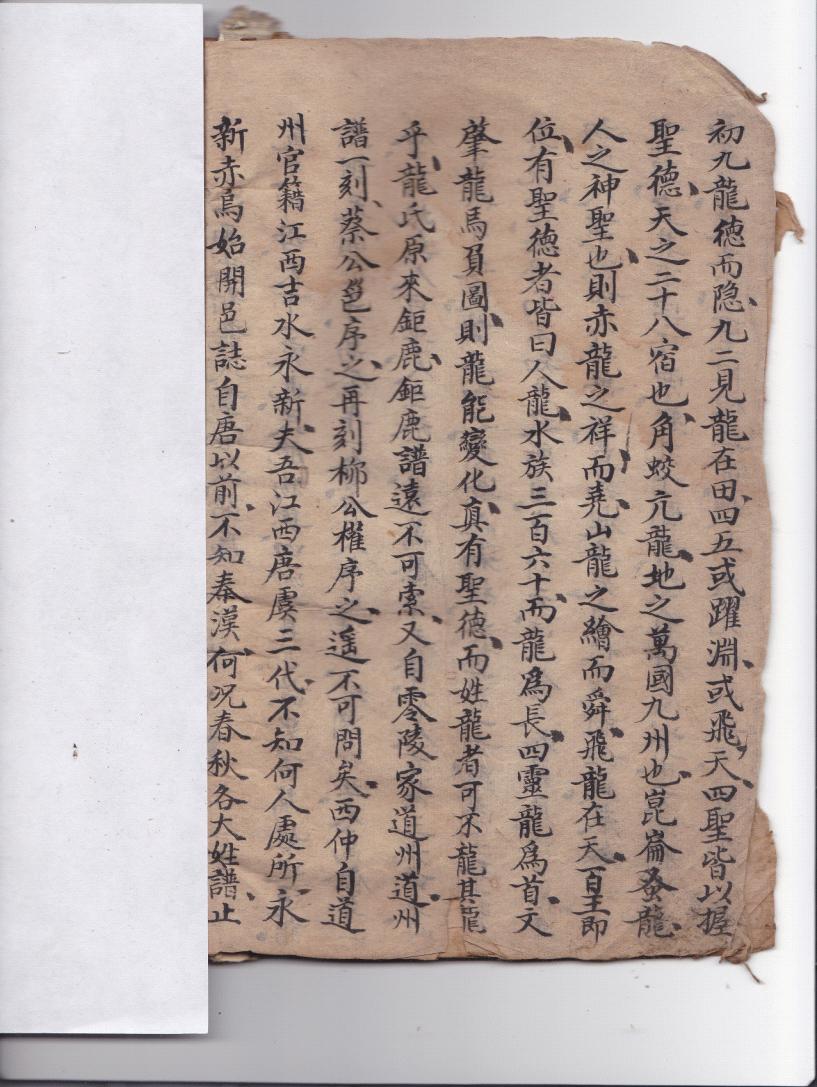 初九龍德而隐九二見龍在田四五或躍淵或飛天四聖皆以握
聖德天之二十八宿也角蛟亢龍地之萬國九州也崑崙蚤龍
人之神聖也則赤龍之祥而堯山龍之繪而舜飛龍在天百王即
位有聖德者皆曰人龍水族三百六十而龍爲長四靈龍爲首文
肇龍馬負圖則龍能變化真有聖德而姓龍者可不龍其龍
乎龍氏原來鉅鹿鉅鹿譜遠不可索又自零陵家道州道州
譜一刻蔡公邕序之再刻柳公權序之遥不可問矣西仲自道
州官籍江西吉水永新夫吾江西唐虞三代不知何人處所永
新赤烏始開邑誌自唐以前不知秦漢何况春秋各大姓譜止